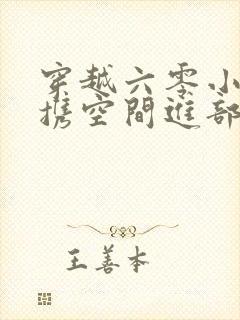 穿越六零小
携空間進部
王善本